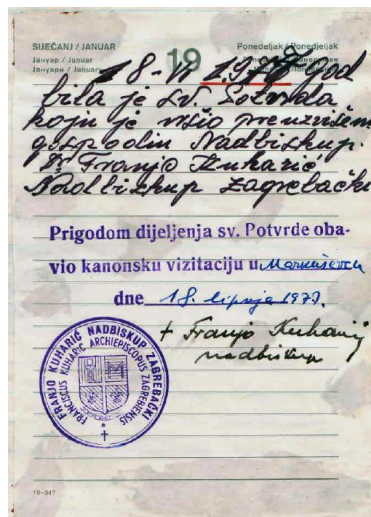 SIJEČANJ / JANUAR
Јануар / Januar
Јануари / Januar
19
Ponedeljak / Ponedjeljak
18-VI 1977 God
bila je sv. Potvrda
koju je vršio preuzvišeni
gospodin Nadbiskup.
Dr Franjo Kuharić
Nadbiskup Zagrebački
Prigodom dijeljenja sv. Potvrde oba-
vio kanonsku vizitaciju u Markuševcu
dne 18. lipnja 1977.
+ Franjo Kuharić
nadbiskup
FRANJO KUHARIĆ NADBISKUP ZAGREBAČKI
FRANCISCUS KUHARIĆ ARCHIEPISCOPUS ZAGREBIENSIS
19-347